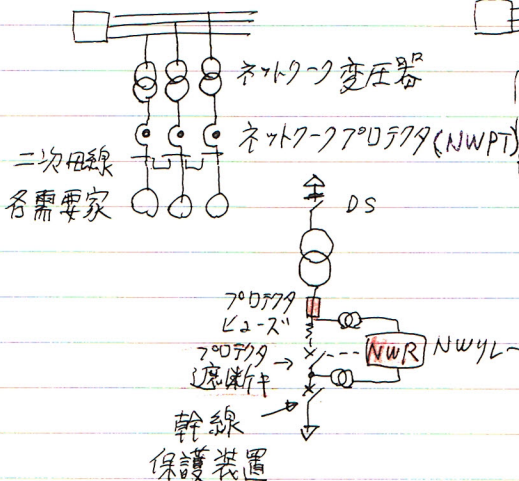 ネットワーク変圧器
ネットワークプロテクタ(NWPT)
二次母線
各需要家
DS
プロテクタ
ヒューズ
プロテクタ
遮断キ
NWR
NWリレー
幹線
保護装置